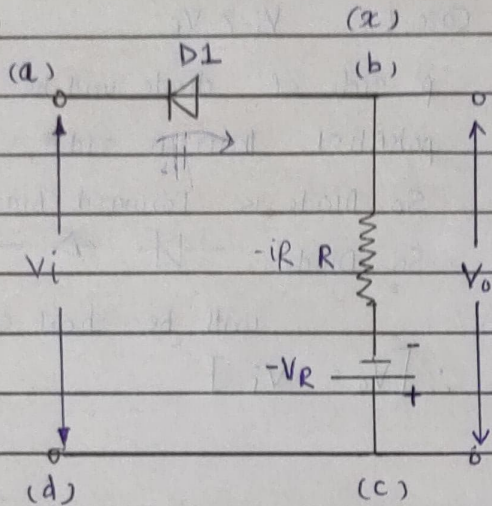 (x)
D1
(a)
(b)
Vi
-iR R
Vo
-VR
-
+
(d)
(c)